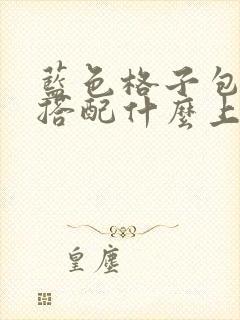 藍色格子包
搭配什麼上
皇塵